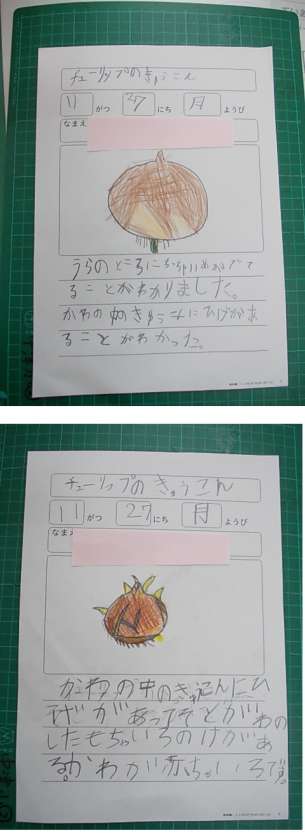 チューリップのきゅうこん
11 がつ 27 にち 月 ようび
なまえ
うらのところにちいさいめがでて
ることがわかりました。
かわの中のきゅうこんにひげがあ
ることがわかった。
チューリップのきゅうこん
11 がつ 27 にち 月 ようび
なまえ
かわの中のきゅうこんにひ
でがあって
したもちゃいろのけがあ
る。かわが赤ちゃいろです。